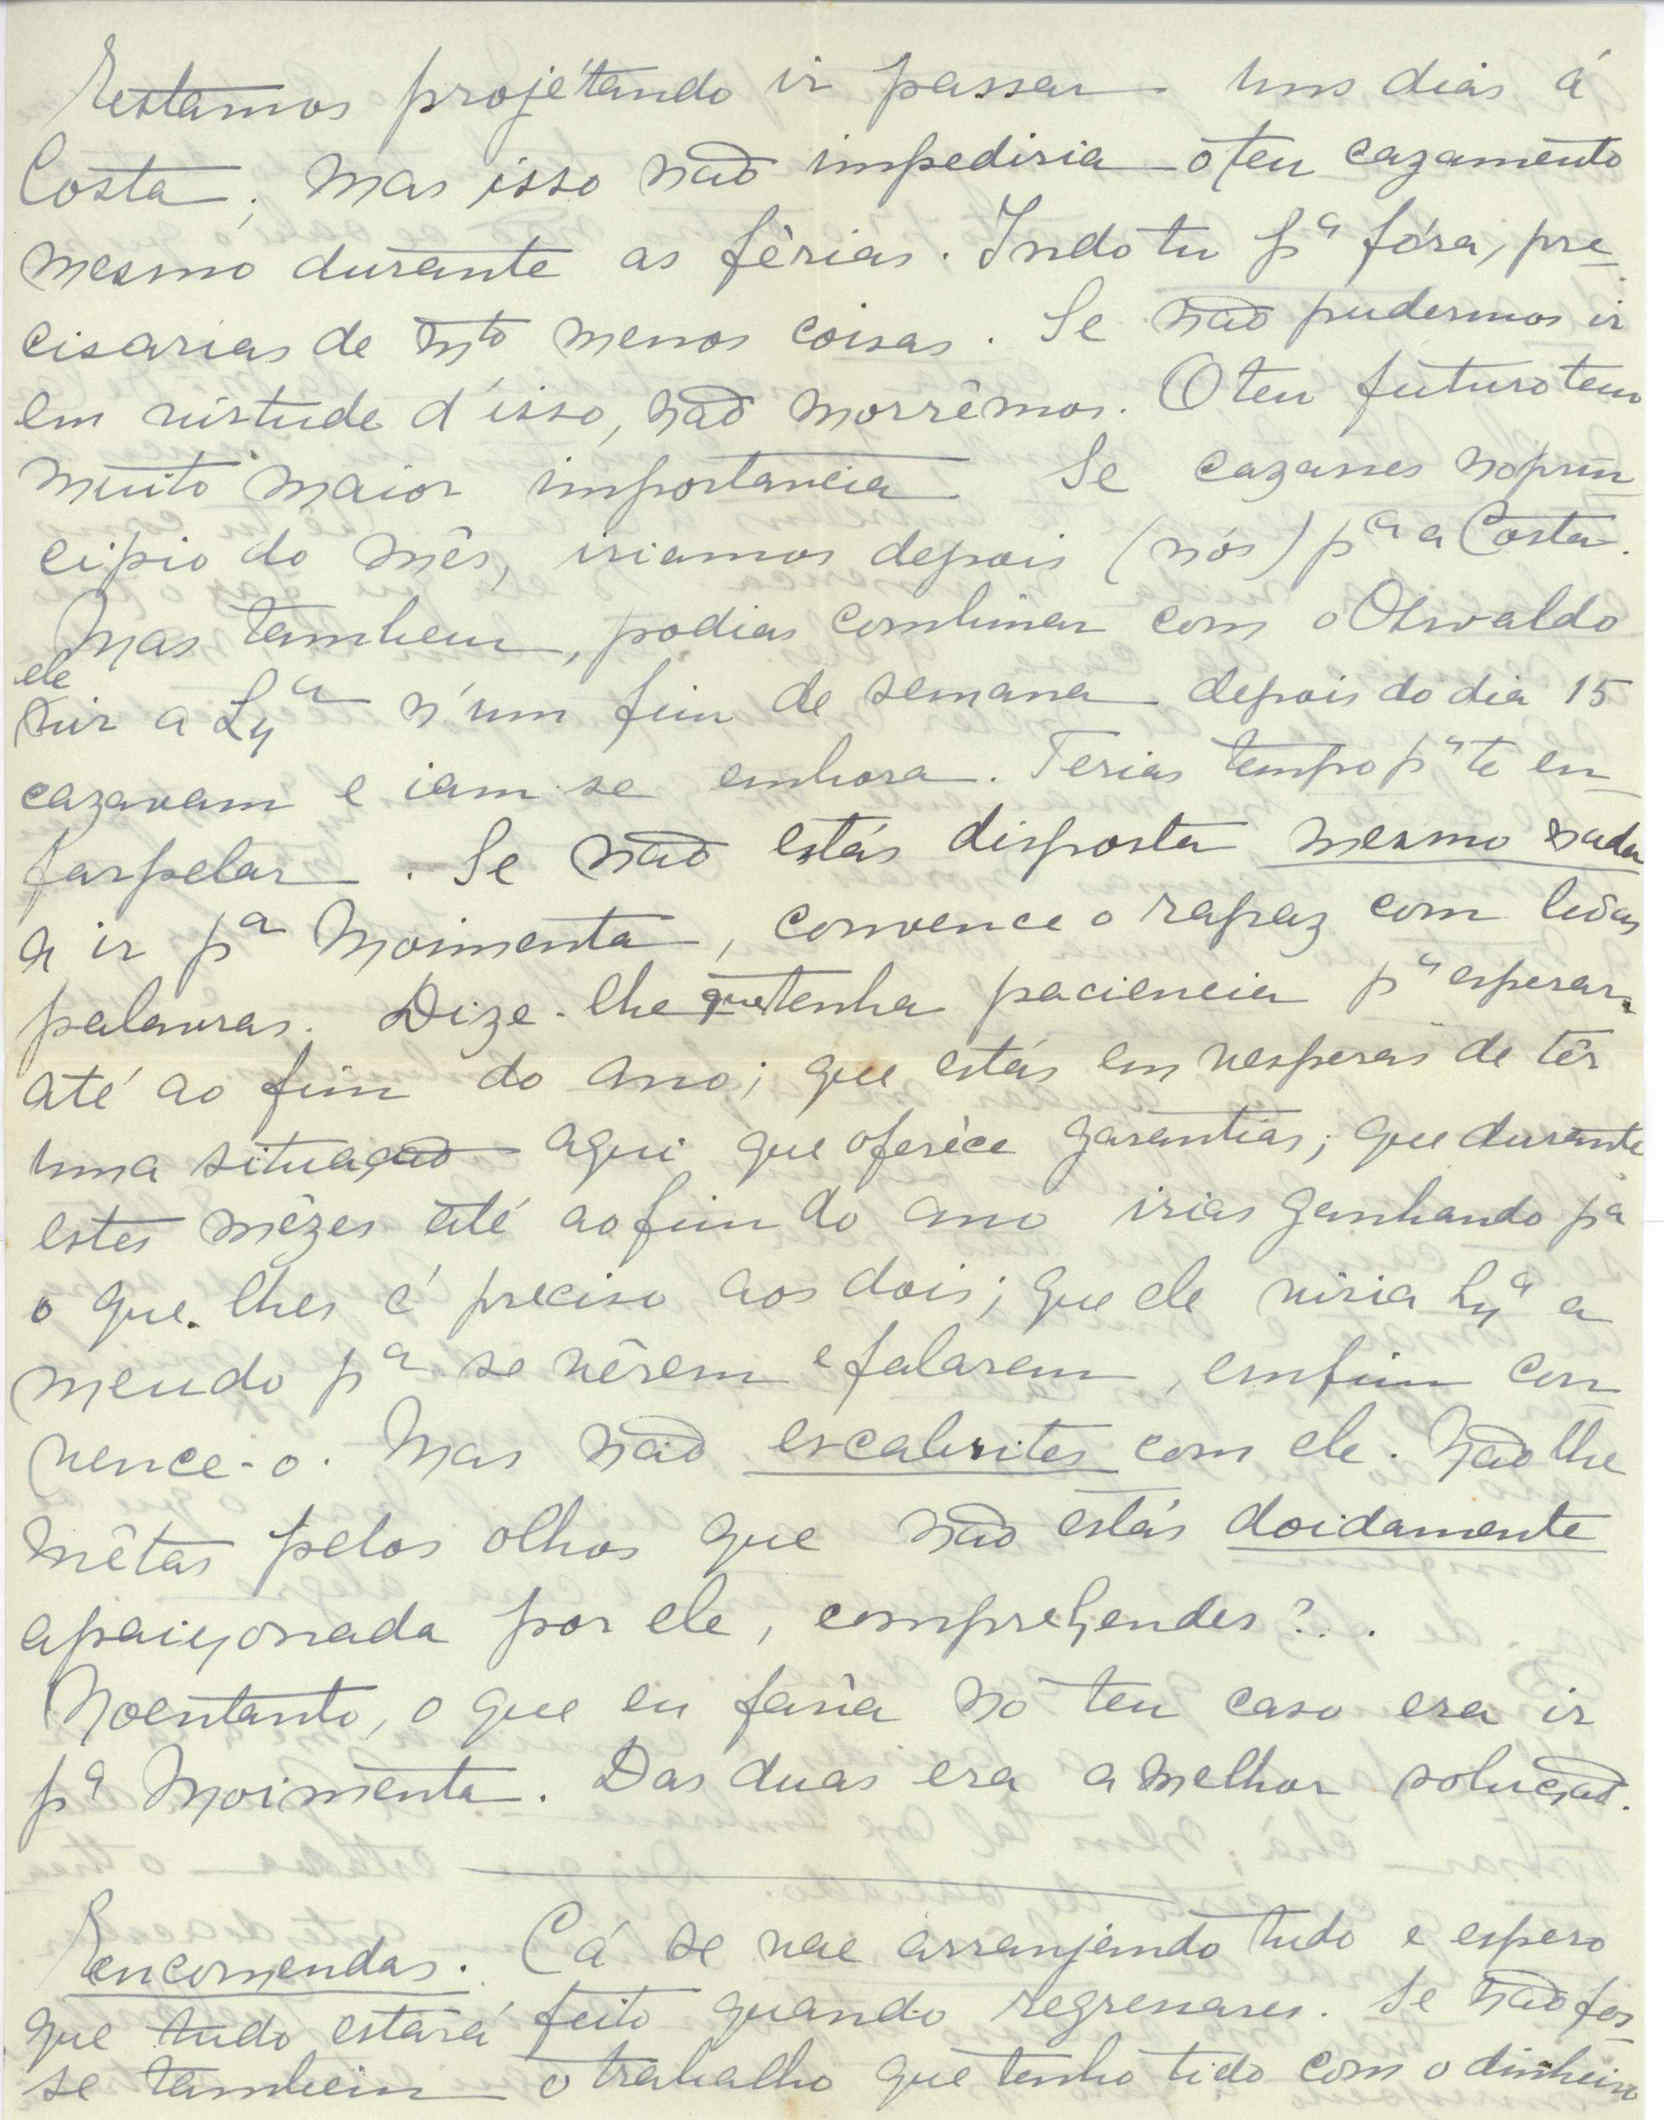 Estamos projétando ir passar uns dias á
Costa; mas isso não impediria o teu cazamento
mesmo durante as férias. Indo tu pª fóra, pre-
cisarias de mto menos coisas. Se não pudermos ir
em virtude d'isso, não morrêmos. O teu futuro tem
muito maior importancia. Se cazasses no prin-
cipio do mês, iriamos depois (nós) pª a Costa.
Mas tambem, podias combinar com o Oswaldo
ele
vir a Lxª n'um fim de semana depois do dia 15
cazavam e iam-se embora. Terias tempo pª te en-
farpelar. Se não estás disposta mesmo nada
a ir pª Moimenta, convence o rapaz com bôas
palavras. Dize-lhe que tenha paciencia pª esperar
até ao fim do ano; que estás em vesperas de têr
uma situação aqui que oferéce garantias; que durante
estes mêzes até ao fim do ano irias ganhando pª
o que lhes é preciso aos dois; que ele viria Lxª a
meudo pª se vêrem e falarem, emfim con-
vence-o. Mas não escabrites com ele. Não lhe
mêtas pelos olhos que não estás doidamente
apaixonada por ele, comprehendes?..
No entanto, o que eu faria no teu caso era ir
pª Moimenta. Das duas era a melhor solução.
Encomendas. Cá se vae arranjando tudo e espero
que tudo estará feito quando regressares. Se não fos-
se tambem o trabalho que tenho tido com o dinheiro